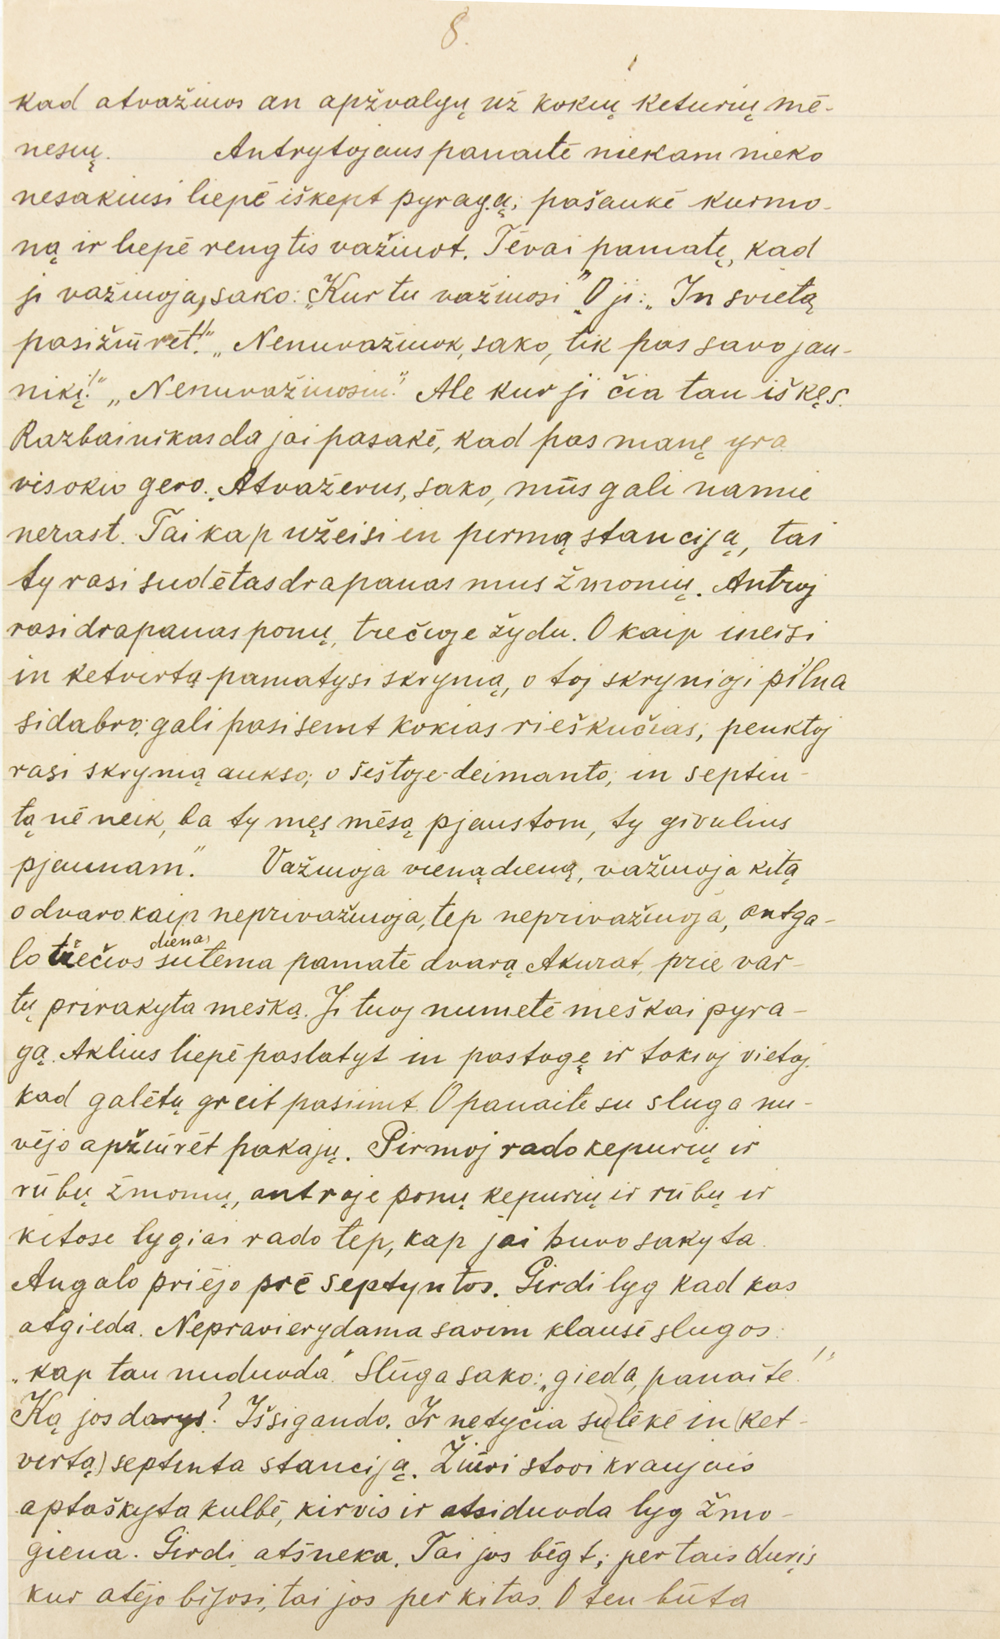 8.
kad atvažiuos an apžvalgų už kokių keturių mė-
nesių. Antrytojaus panaitė niekam nieko
nesakiusi liepė iškept pyragą; pašaukė kurmo-
ną ir liepė rengtis važiuot. Tėvai pamatę, kad
ji važiuoja, sako: „Kur tu važiuosi" O ji: „In svietą
pasižiūrėt!" „Nenuvažiuok, sako, tik pas savo jau-
nikį!" „Nenuvažiuosiu". Ale kur ji čia tau iškęs.
Razbainikas da jai pasakė, kad pas manę yra
visokio gero. „Atvaževus, sako, mūs gali namie
nerast. Tai kap užeisi in pirmą stanciją, tai
ty rasi sudėtas drapanas mus žmonių. Antroj
rasi drapanas ponų, trečioje žydu. O kaip ineisi
in ketvirtą pamatysi skrynią, o toj skrynioj pilna
sidabro; gali pasisemt kokias rieškučias; penktoj
rasi skrynią aukso; o šeštoje deimanto; in septin-
tą nė neik, ba ty męs mėsą pjaustom, ty givulius
pjaunam." Važiuoja vieną dieną, važiuoja kitą
o dvaro kaip neprivažiuoja, tep neprivažiuoja, antga-
lo trečios dienos sutema pamatė dvarą. Akurat, prie var-
tų prirakyta meška. Ji tuoj numetė meškai pyra-
gą. Aklius liepė pastatyt in pastogę ir tokioj vietoj
kad galėtų greit pasiimt. O panaitė su sluga nu-
vėjo apžiūrėt pakajų. Pirmoj rado kepurių ir
rūbų žmonių, antroje ponų kepurių ir rūbų ir
kitose lygiai rado tep, kap jai buvo sakyta.
Angalo priėjo prė septyntos. Girdi lyg kad kas
atgieda. Nepravierydama savim klausė slugos:
„kap tau nuduoda" Slūga sako: „gieda, panaite!"
Ką jos darys? Išsigando. Ir netyčia sulėkė in (ket-
vertą) septinta stanciją. Žiūri stovi kraujais
aptaškyta kulbė, kirvis ir atsiduoda lyg žmo-
giena. Girdi, atšneka. Tai jos bėgt; per tais duris
kur atėjo bijosi, tai jos per kitas. O ten būta